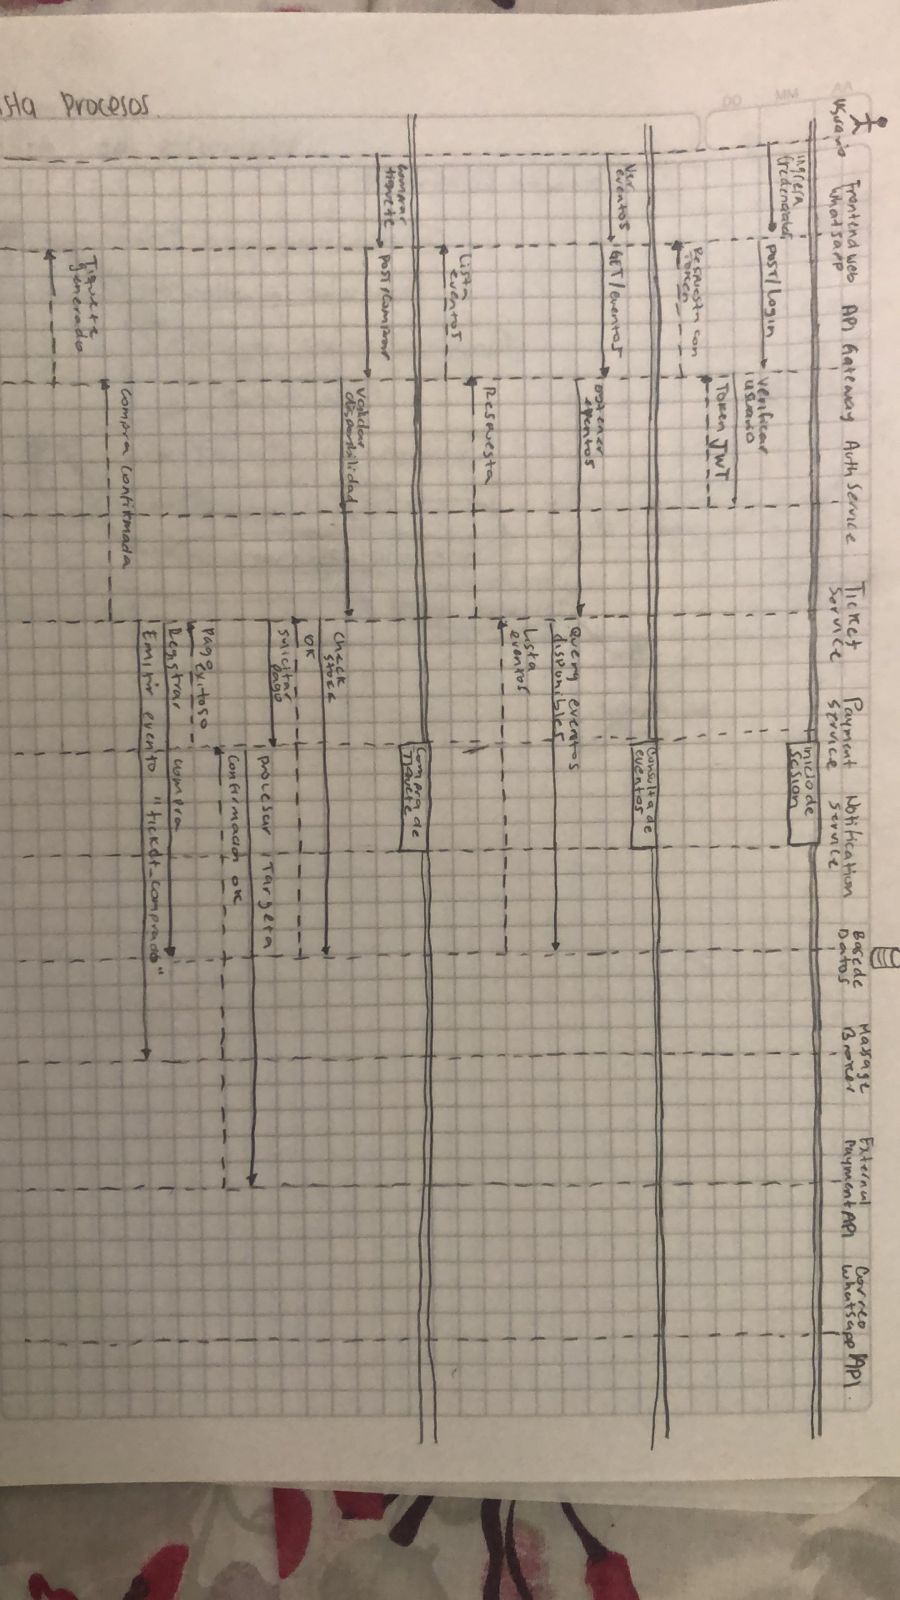 Usuario
Frontend web
whatsapp
API Gateway
Auth Service
Ticket
Service
Payment
Service
Notification
Service
Base de
Datos
Massage
Broker
External
Payment API
Correo
Whatsapp API
Inicio de
Sesion
Ingresa
Credenciales
POST/Login
verificar
usuario
Token JWT
Respuesta con
Token
Consulta de
eventos
Ver
eventos
GET/eventos
obtener
eventos
Query eventos
disponibles
Lista
eventos
Respuesta
Lista
eventos
Compra de
Tiquete
Comprar
tiquete
POST/Comprar
Validar
disponibilidad
Check
stock
OK
Solicitar
pago
procesar Targeta
Confirmacion OK
Pago
exitoso
Registrar compra
Emitir evento "ticket_comprado"
Compra Confirmada
Tiquete
generado
sta procesos